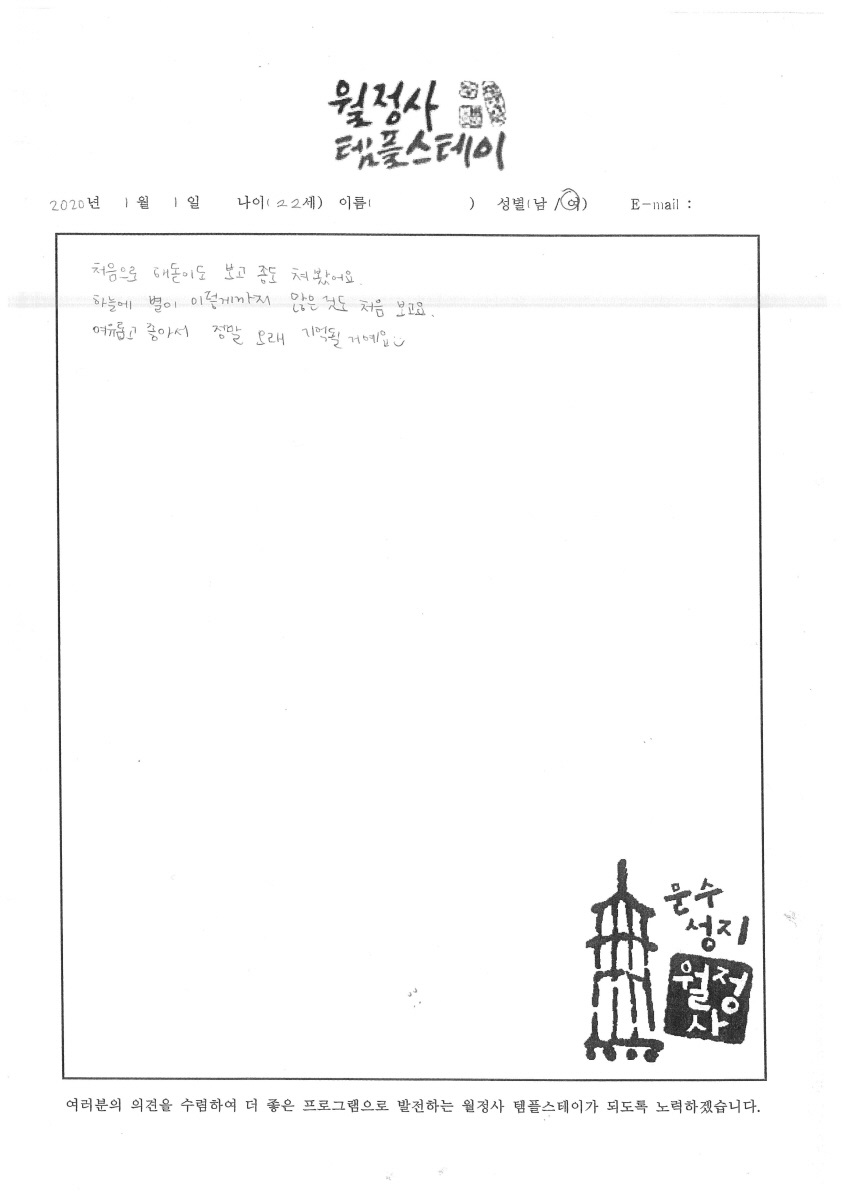 월정사
템플스테이
2020년 1월 1일 나이(22세) 이름( ) 성별(남/여) E-mail :
처음으로 해돋이도 보고 종도 쳐봤어요.
하늘에 별이 이렇게까지 많은것도 처음 보고요.
여유롭고 좋아서 정말 오래 기억될 거예요
문수
성지
월정
사
여러분의 의견을 수렴하여 더 좋은 프로그램으로 발전하는 월정사 템플스테이가 되도록 노력하겠습니다.